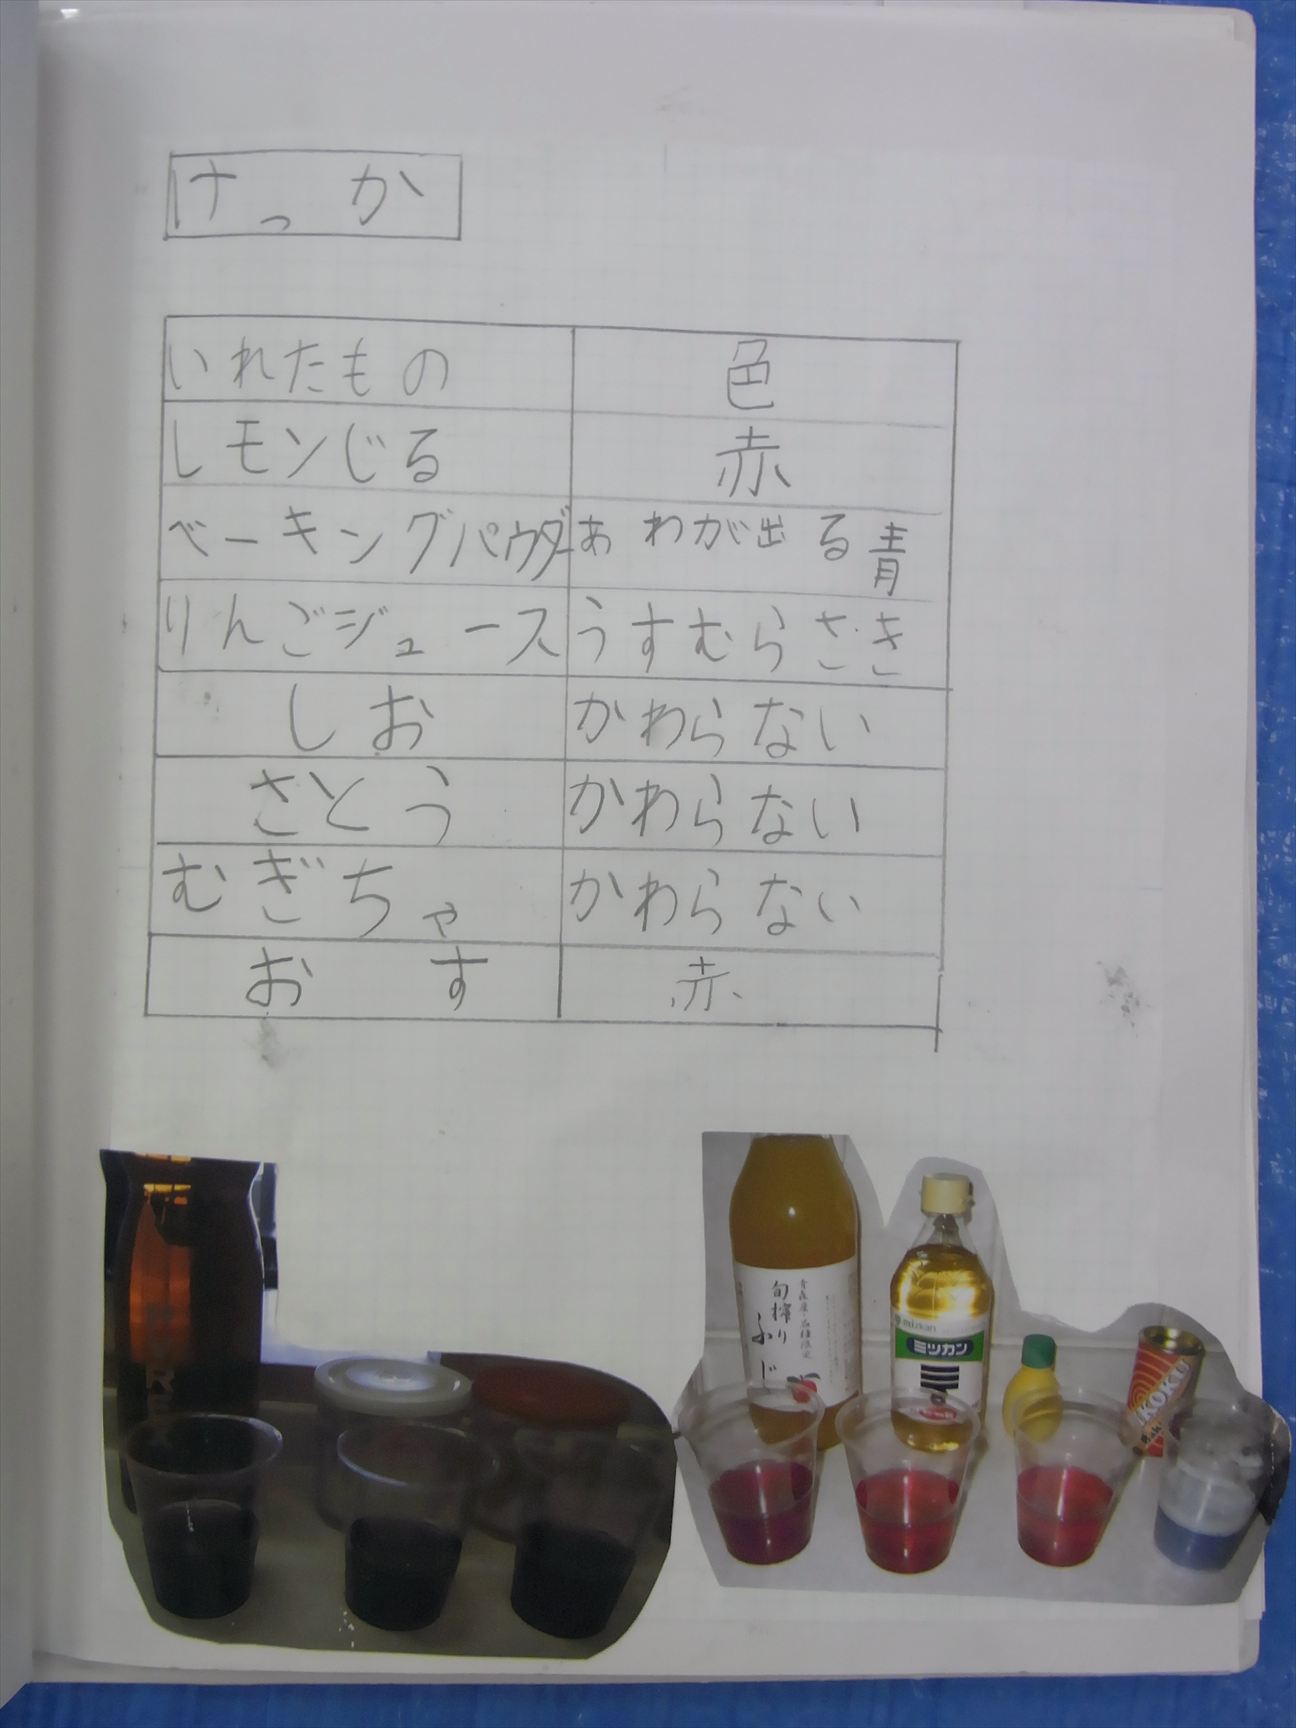 けっか
いれたもの 色
レモンじる 赤
ベーキングパウダー あわが出る青
りんごジュース うすむらさき
しお かわらない
さとう かわらない
むぎちゃ かわらない
おす 赤
旬搾り
ふじ
mizkan
ミツカン
KOKU